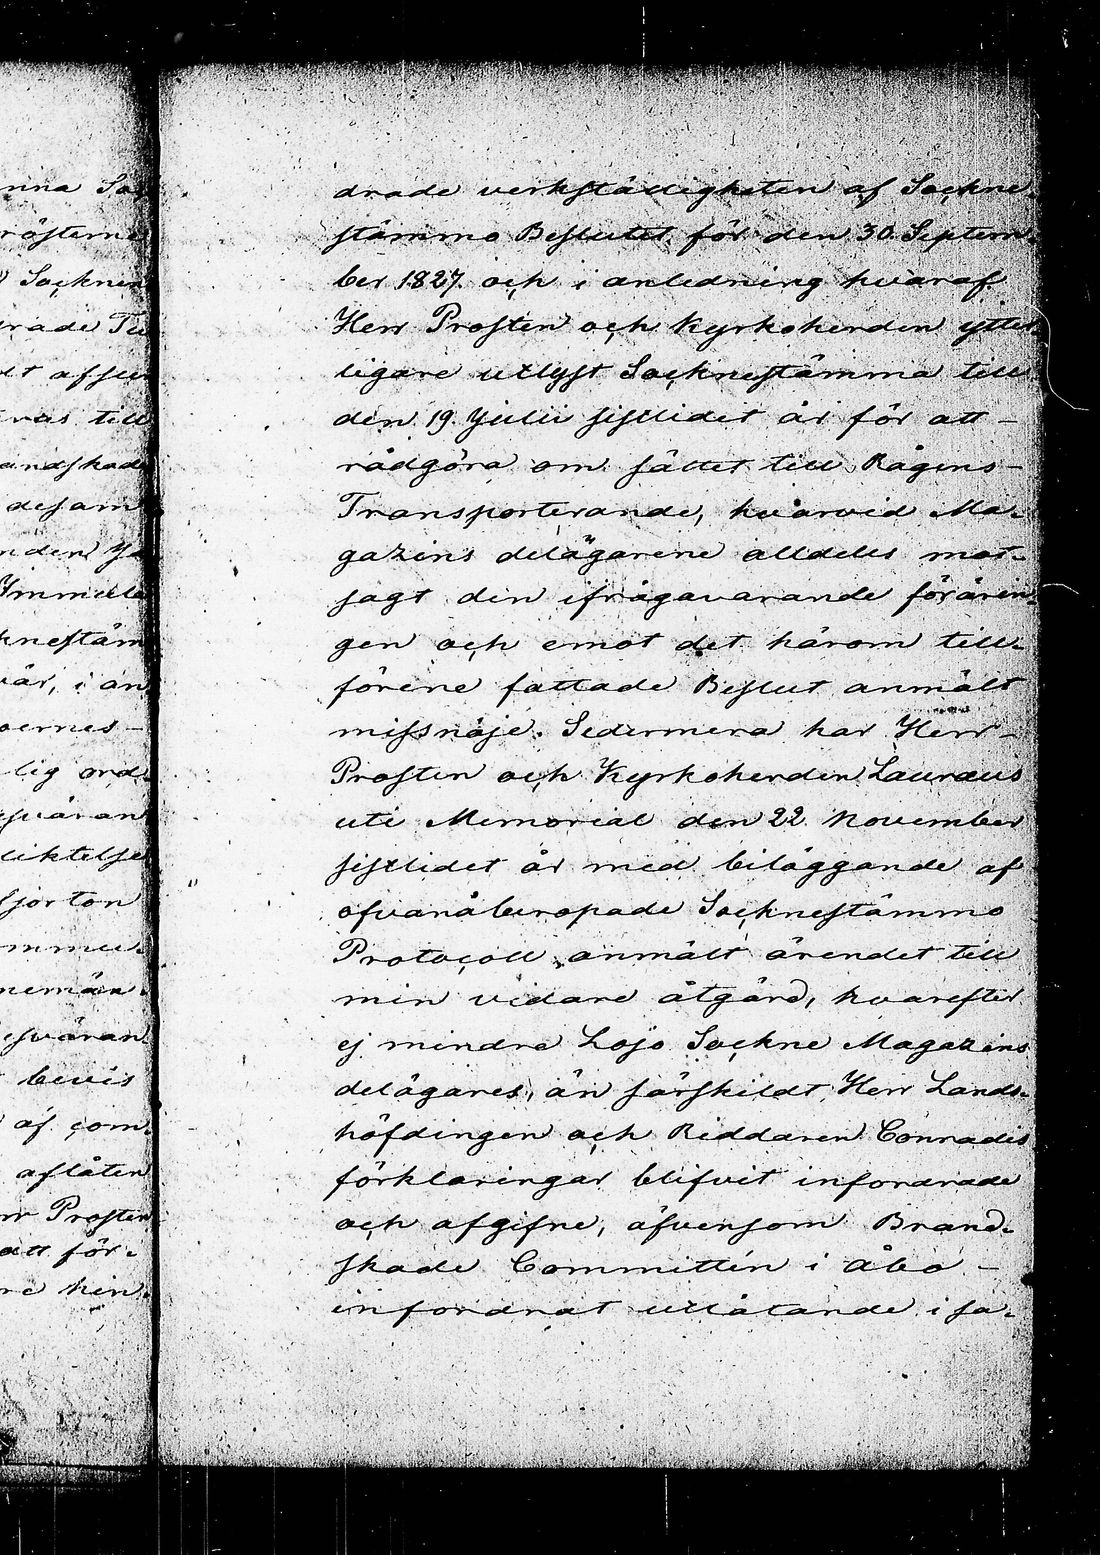 nna Soc
rösterne
Socknen
rade Tu
dt afslu
ras till
andskade
desam
nden Ja
Ymmela
knestäm
vår, i an
oernes-
lig ord.
esväran
liktelse
fjorton
ommu.
nemän.
esväran
bevis
af com.
aflåten
rr Prosten
att för.
re hin.
drade verkställigheten af Sockne
stämmo Beslutet för den 30 Septem-
ber 1827. och i anledning hvaraf
Herr Prosten och Kyrkoherden ytter
ligare utlyst Socknestämma till
den 19. Julii sistlidet år för att -
rådgöra om sättet till Rågens-
Transporterande, hvarvid Ma-
gazins delägarene alldeles mot-
sagt den ifrågavarande förärin-
gen och emot det härom till-
förene fattade Beslut anmält
missnöje. Sedermera har Herr-
Prosten och Kyrkoherden Lauraeus
uti Memorial den 22 November
sistlidet år med biläggande af
ofvanåberopade Socknestämmo
Protocoll anmält ärendet till
min vidare åtgärd, hvarefter
ej mindre Lojo Sockne Magazins
delägares, än särskildt Herr Lands-
höfdingen och Riddaren Conradis
förklaringar blifvit infordrade
och afgifne, äfvensom Brand-
skade Committén i Åbo -
infordrat utlåtande i sa-